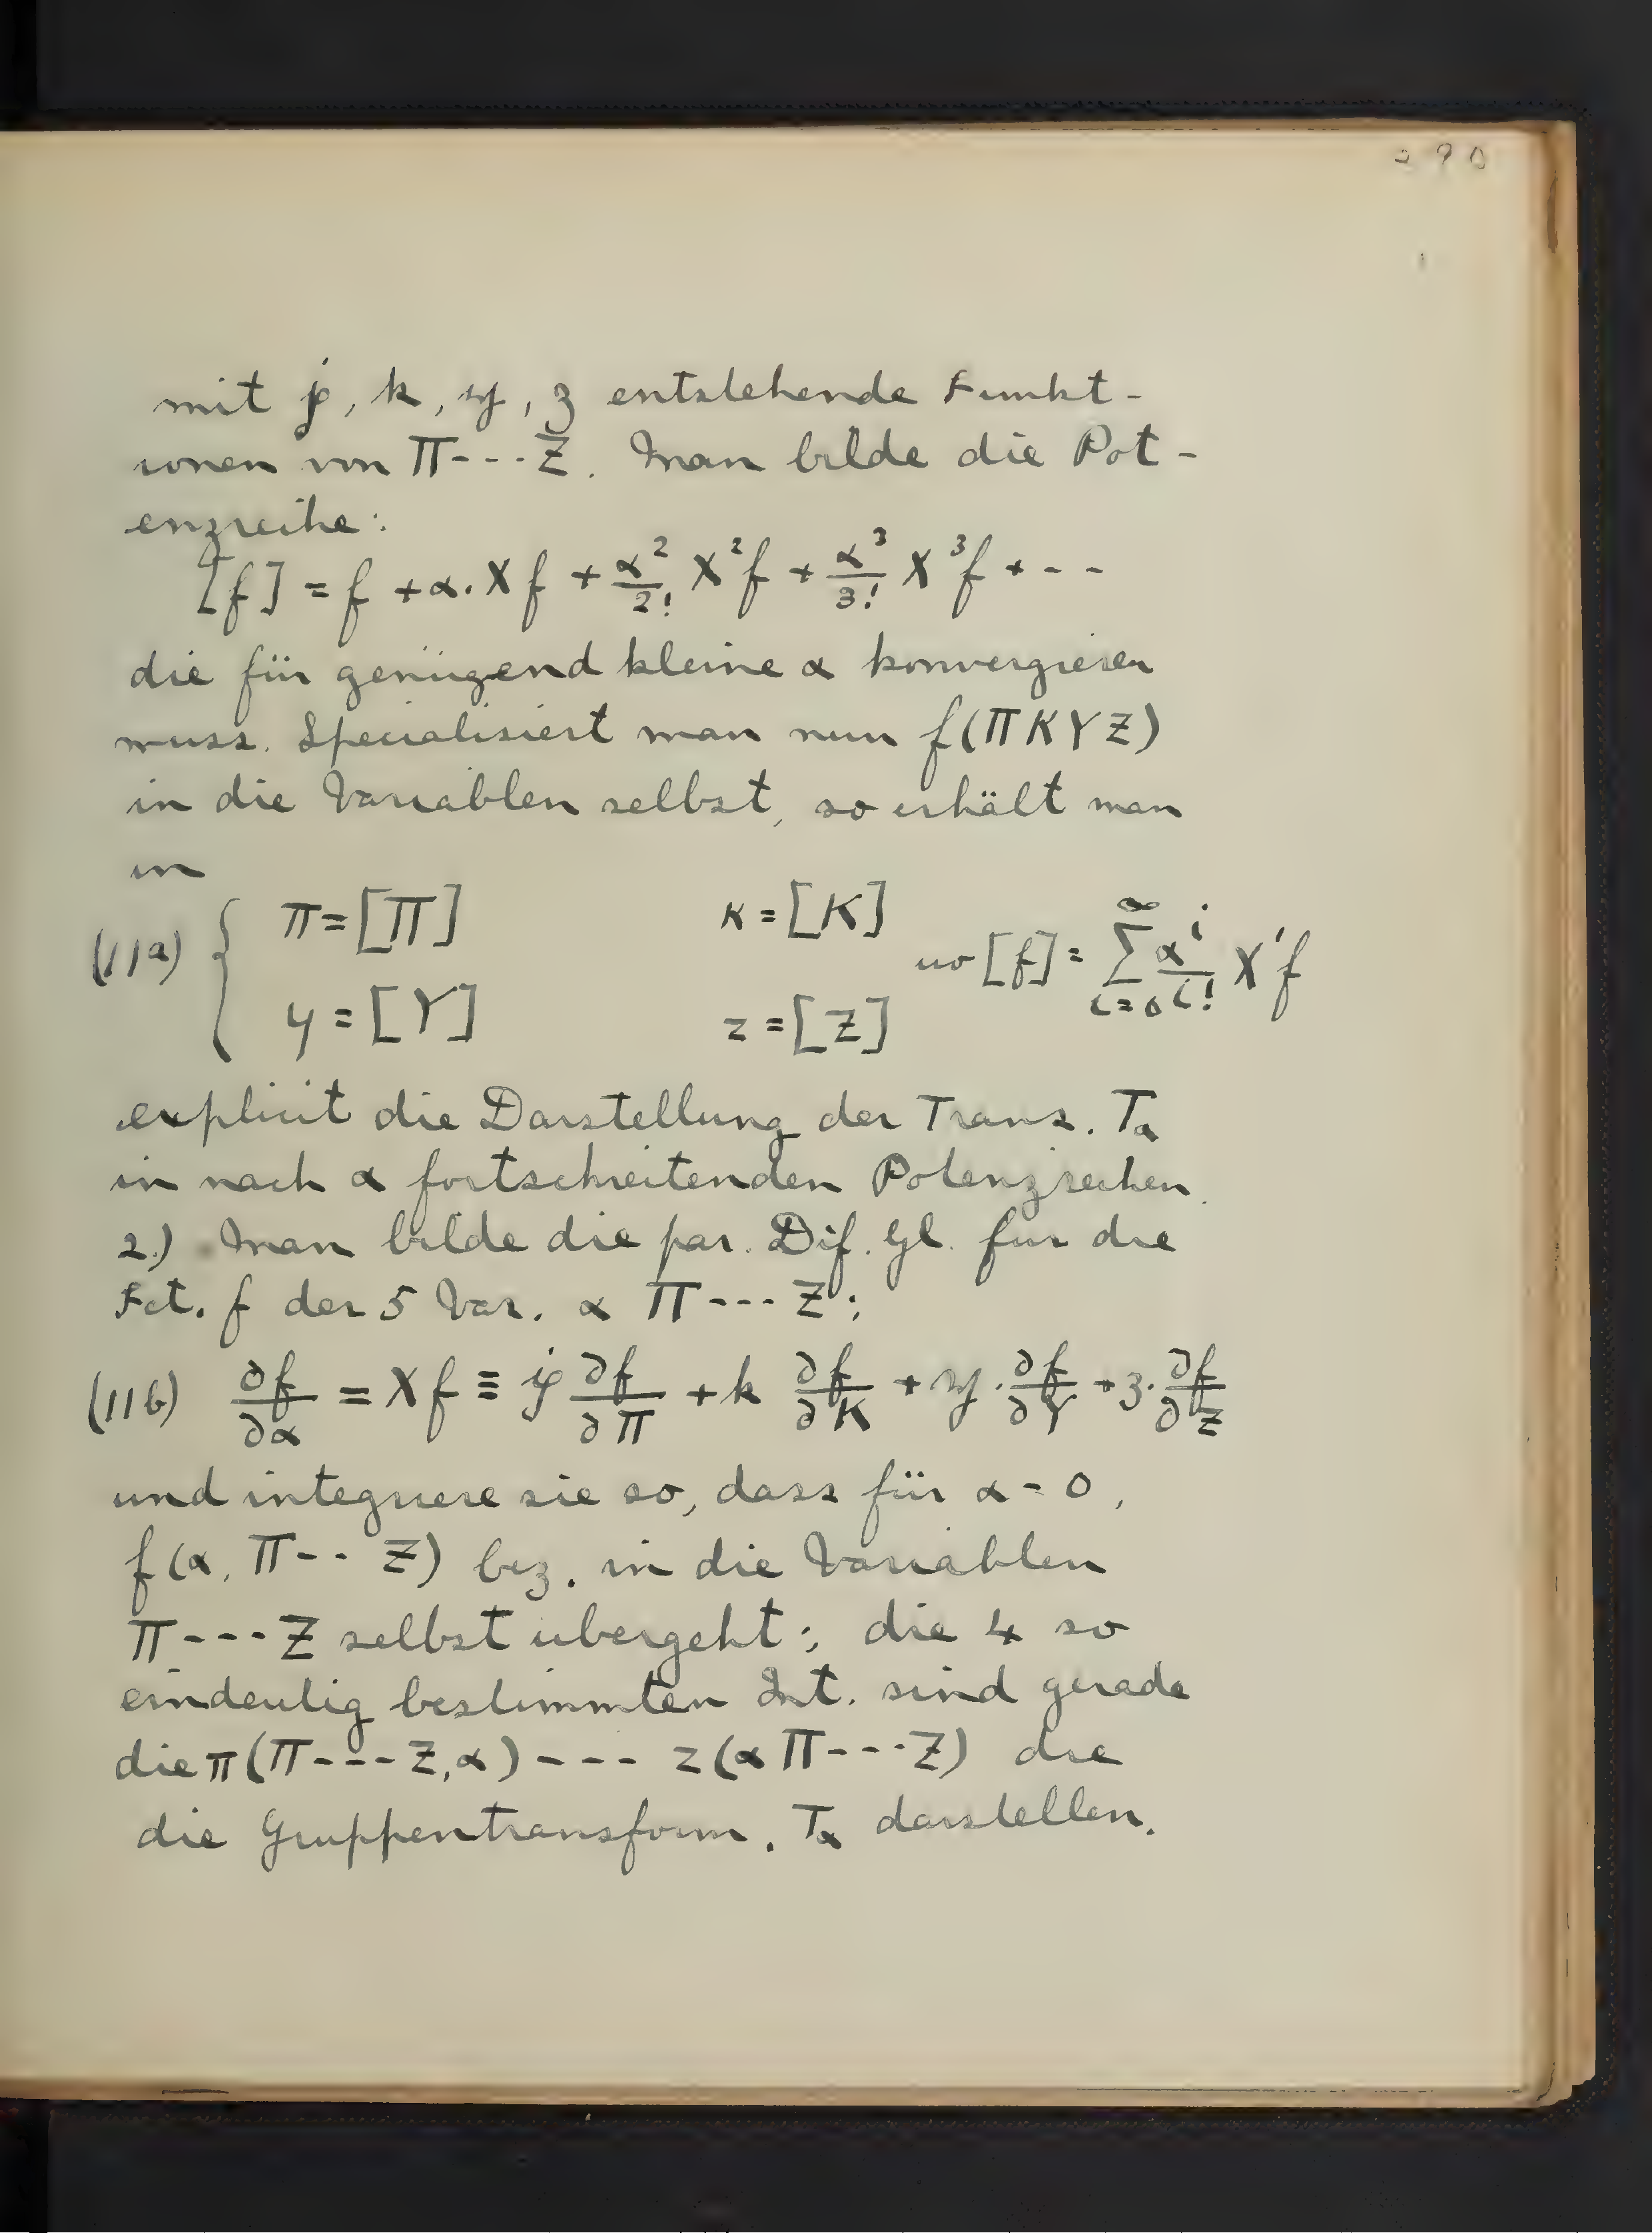 290
mit 𝔭, k, 𝔶, 𝔷 entstehende Funkt-
ionen von Π---Z. Man bilde die Pot-
enzreihe:
[f] = f + α. X f + α²/2! X²f + α³/3! X³f + --
die für genügend kleine α konvergieren
muss. Specialisiert man nun f(Π K Y Z)
in die Variablen selbst, so erhält man
in
(11a) { π = [Π]   κ = [K]
y = [Y]   z = [Z]   wo [f] = ∞Σi=0 αⁱ/i! Xⁱf
explicit die Darstellung der Trans. Tα
in nach α fortschreitenden Potenzreihen.
2.) Man bilde die par. Dif. Gl. für die
Fct. f der 5 Var. α Π --- Z:
(11b) ∂f/∂α = X f ≡ 𝔭 ∂f/∂Π + k ∂f/∂K + 𝔶. ∂f/∂Y + 𝔷. ∂f/∂Z
und integriere sie so, dass für α = 0,
f(α, Π-- Z) bez. in die Variablen
Π --- Z selbst übergeht; die 4 so
eindeutig bestimmten Int. sind gerade
die π(Π---Z,α) --- z(α Π---Z) die
die Gruppentransform. Tα darstellen.